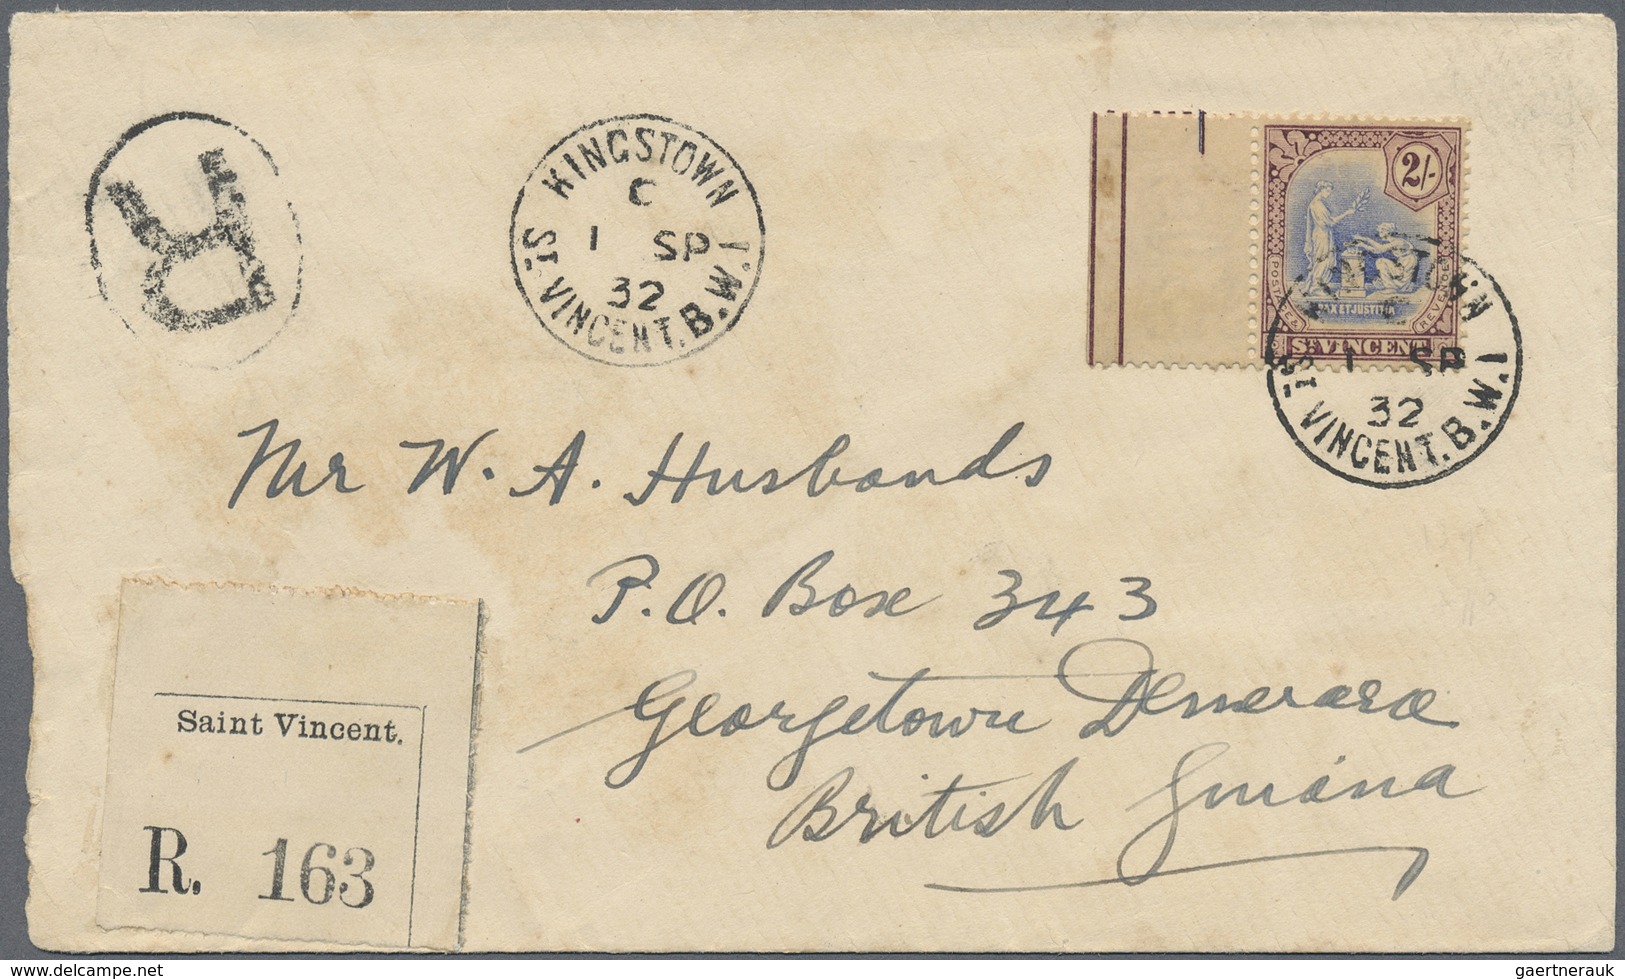 R
KINGSTOWN
C
1 SP
32
ST. VINCENT. B.W.I.
2/-
POSTAGE & REVENUE
PAX ET JUSTITIA
ST VINCENT
KINGSTOWN
1 SP
32
ST. VINCENT. B.W.I.
Mr W. A. Husbands
P.O. Box 343
Georgetown Demerara
British Guiana
Saint Vincent.
R. 163
www.delcampe.net
gaertnerauk